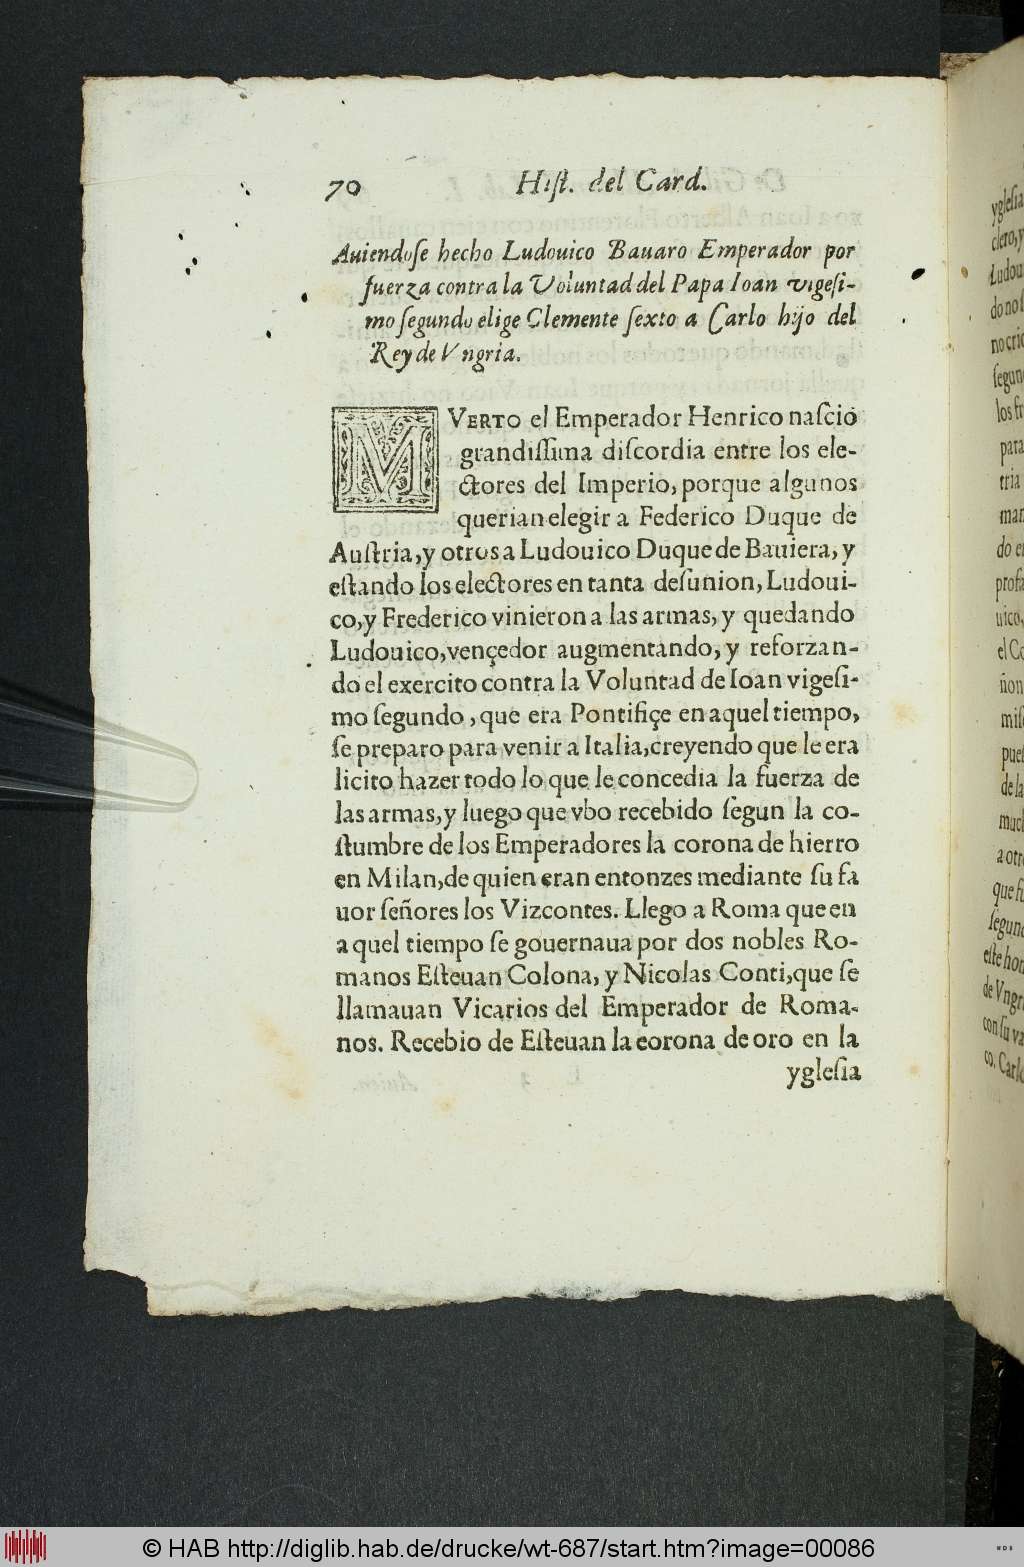 70 Hist. del Card.
Auiendose hecho Ludouico Bauaro Emperador por
fuerza contra la Voluntad del Papa Ioan vigesi-
mo segundo elige Clemente sexto a Carlo hijo del
Rey de Vngria.
MVERTO el Emperador Henrico nasciò
grandissima discordia entre los ele-
ctores del Imperio, porque algunos
querian elegir a Federico Duque de
Austria, y otros a Ludouico Duque de Bauiera, y
estando los electores en tanta desunion, Ludoui-
co, y Frederico vinieron a las armas, y quedando
Ludouico, vençedor augmentando, y reforzan-
do el exercito contra la Voluntad de Ioan vigesi-
mo segundo, que era Pontifiçe en aquel tiempo,
se preparo para venir a Italia, creyendo que le era
licito hazer todo lo que le concedia la fuerza de
las armas, y luego que vbo recebido segun la co-
stumbre de los Emperadores la corona de hierro
en Milan, de quien eran entonzes mediante su fa
uor señores los Vizcontes. Llego a Roma que en
aquel tiempo se gouernaua por dos nobles Ro-
manos Esteuan Colona, y Nicolas Conti, que se
llamauan Vicarios del Emperador de Roma-
nos. Recebio de Esteuan la corona de oro en la
yglesia
yglesia
clero, y
Ludou
do no s
no crio
segun
los fr
para
tria
man
do en
profa
uico,
el Co
ñon
mise
pues
de la
much
a otro
que fu
segund
este hon
de Vngri
con su va
co. Carlo
© HAB http://diglib.hab.de/drucke/wt-687/start.htm?image=00086